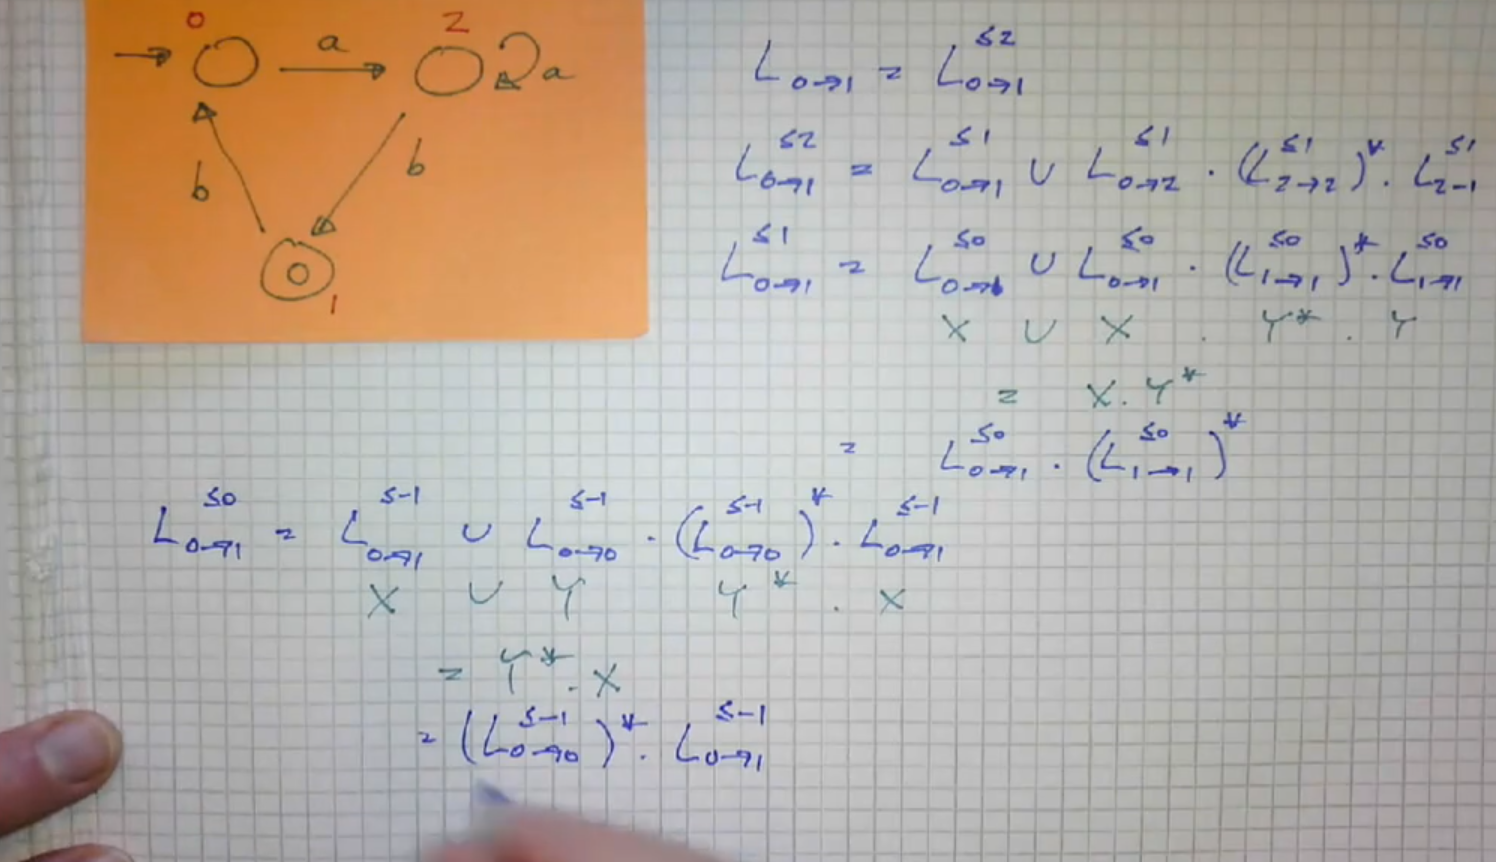 0 2
a a
b b
1
L_{0→1} = L_{0→1}^{≤2}
L_{0→1}^{≤2} = L_{0→1}^{≤1} ∪ L_{0→2}^{≤1} · (L_{2→2}^{≤1})^* · L_{2-1}^{≤1}
L_{0→1}^{≤1} = L_{0→1}^{≤0} ∪ L_{0→1}^{≤0} · (L_{1→1}^{≤0})^* · L_{1→1}^{≤0}
X ∪ X · Y^* · Y
= X · Y^*
= L_{0→1}^{≤0} · (L_{1→1}^{≤0})^*
L_{0→1}^{≤0} = L_{0→1}^{≤-1} ∪ L_{0→0}^{≤-1} · (L_{0→0}^{≤-1})^* · L_{0→1}^{≤-1}
X ∪ Y Y^* · X
= Y^* · X
= (L_{0→0}^{≤-1})^* · L_{0→1}^{≤-1}